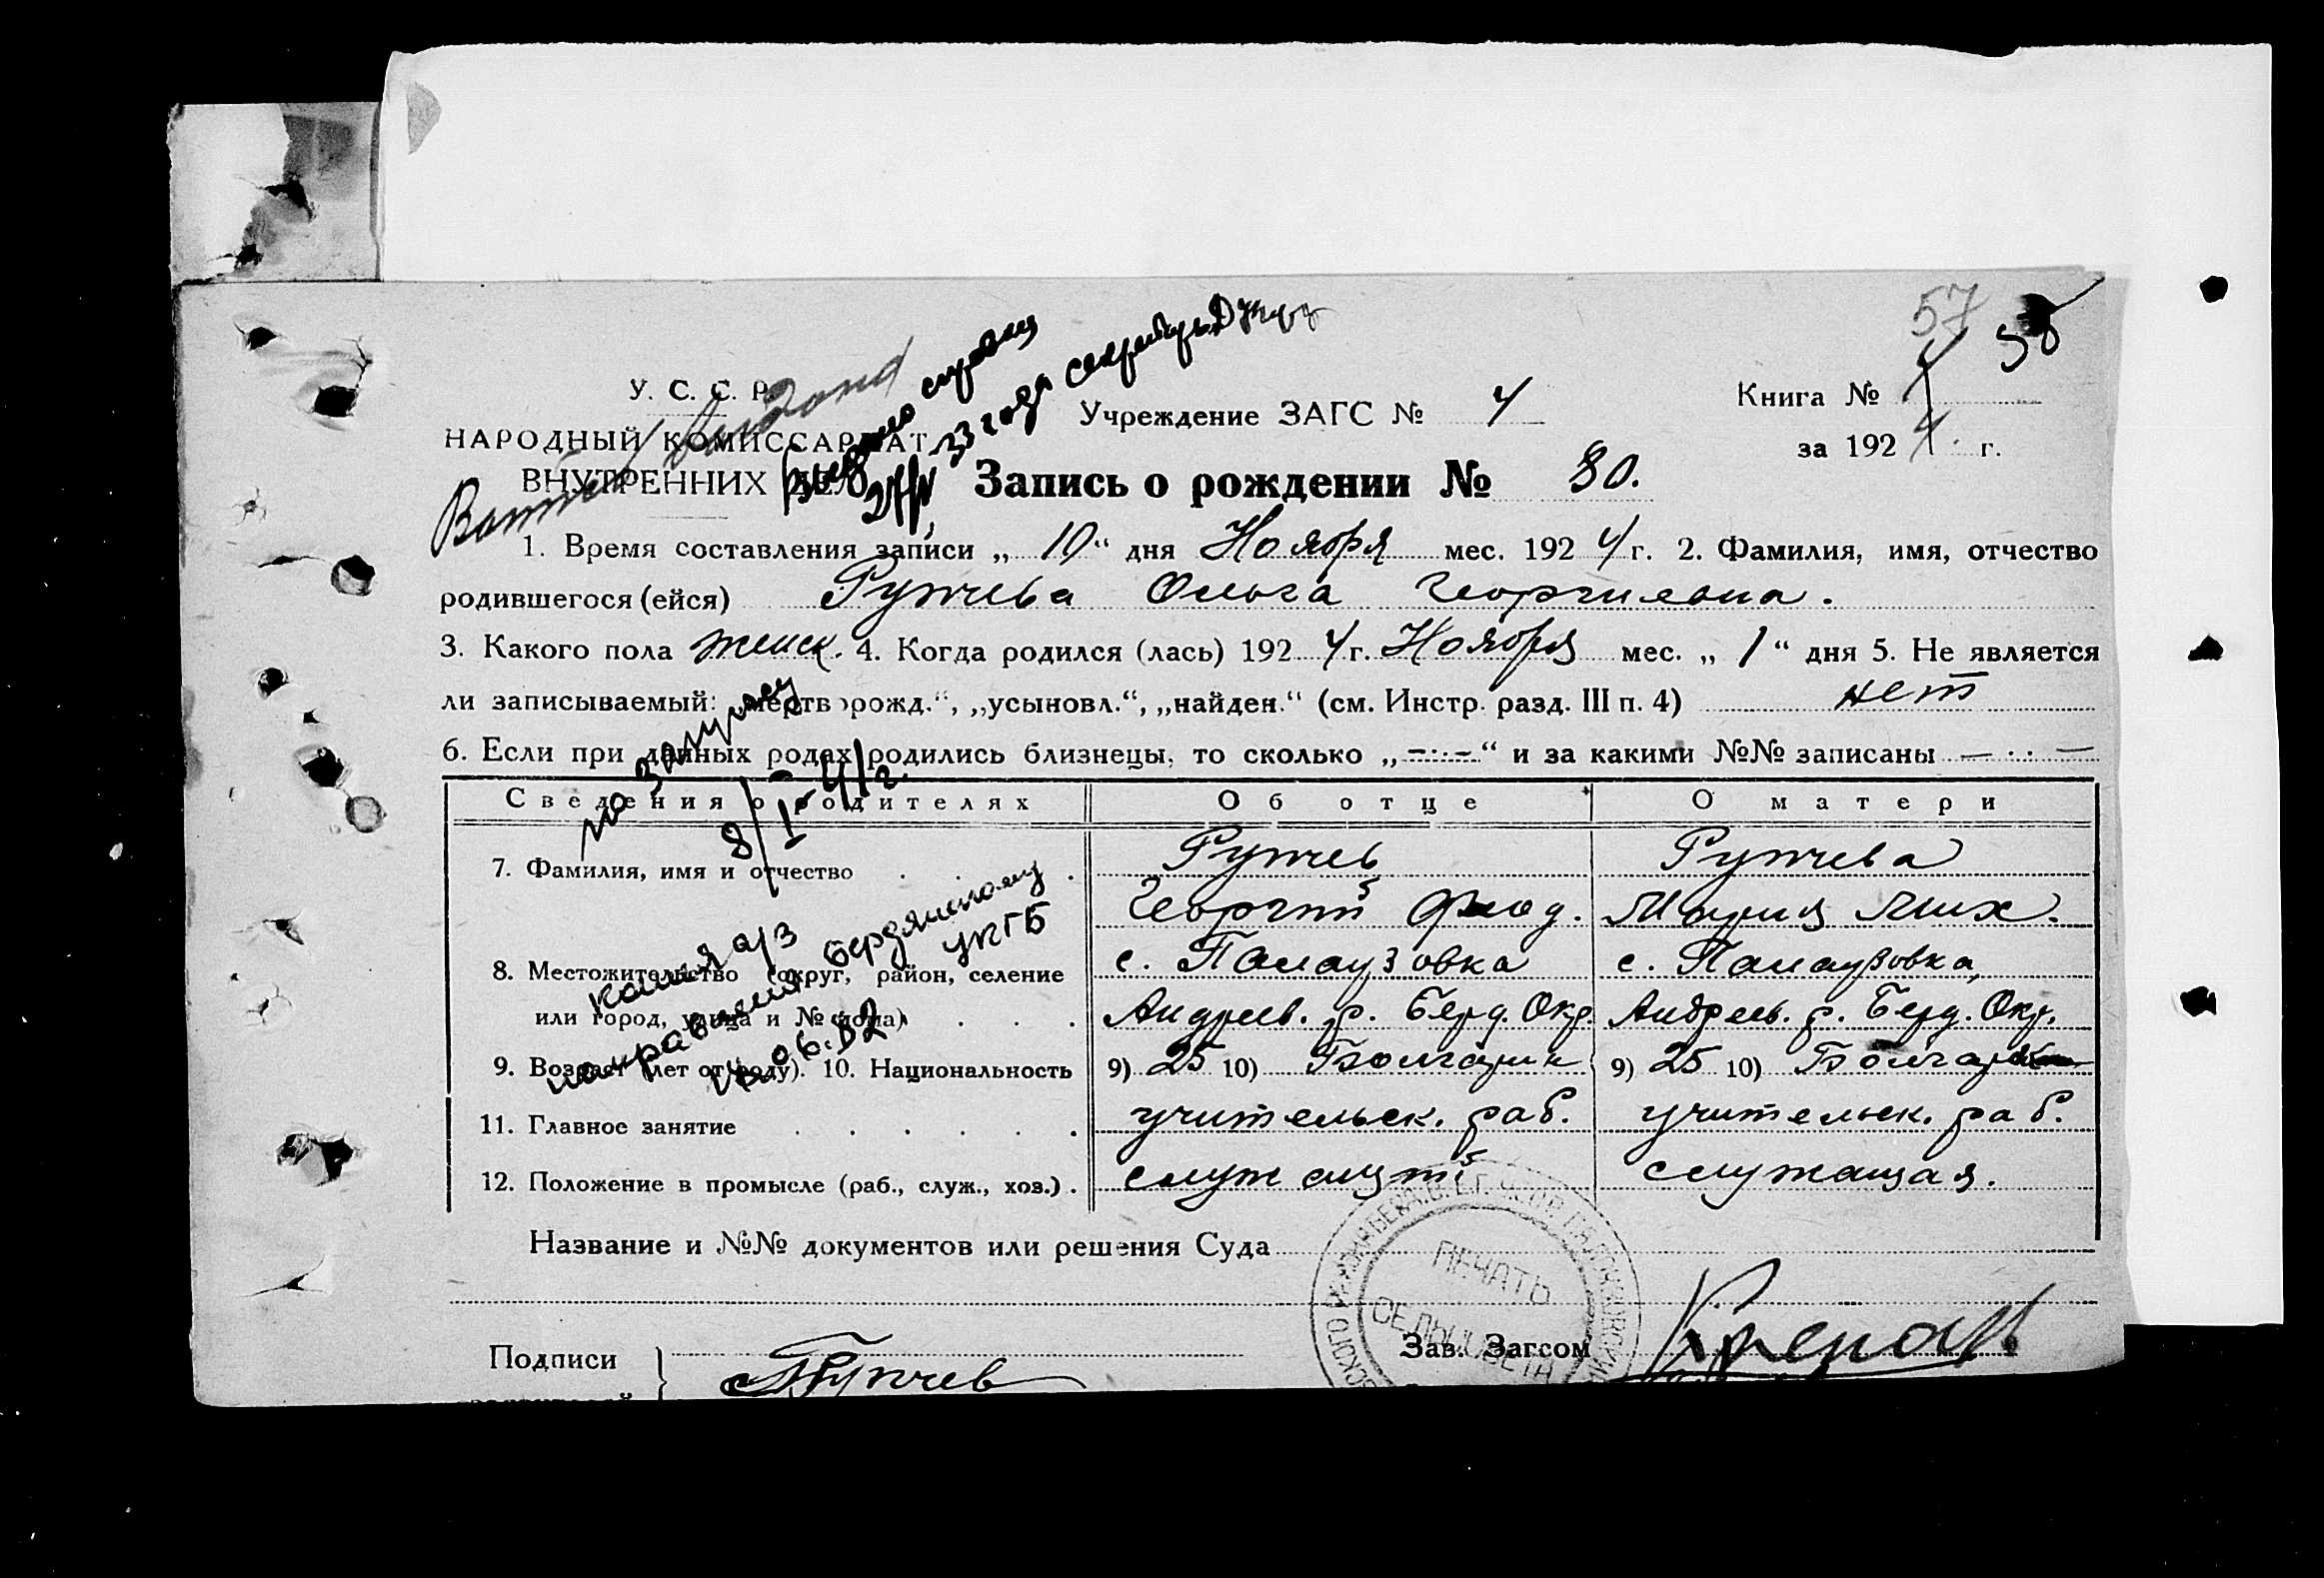 57
58
У. С. С. Р.
НАРОДНЫЙ КОМИССАРИАТ
ВНУТРЕННИХ ДЕЛ
Учреждение ЗАГС № 4
Книга №
за 1924 г.
Запись о рождении № 80.
1. Время составления записи „10“ дня Ноября мес. 1924 г. 2. Фамилия, имя, отчество
родившегося (ейся) Ружчева Ольга Георгиевна.
3. Какого пола женск. 4. Когда родился (лась) 1924 г. Ноября мес. „1“ дня 5. Не является
ли записываемый: „мертворожд.“, „усыновл.“, „найден.“ (см. Инстр. разд. III п. 4) нет
6. Если при данных родах родились близнецы, то сколько „—·:·—“ и за какими №№ записаны — ·:· —
Сведения о родителях Об отце О матери
7. Фамилия, имя и отчество Ружчев Ружчева
Георгий Феод. Мария Мих.
8. Местожительство (округ, район, селение с. Палаузовка с. Палаузовка,
или город, улица и № дома) Андреев. р. Берд. Окр. Андреев. р. Берд. Окр.
9. Возраст (лет от роду). 10. Национальность 9) 25 10) Болгарин 9) 25 10) Болгарка
11. Главное занятие учительск. раб. учительск. раб.
12. Положение в промысле (раб., служ., хоз.) служащий служащая.
Название и №№ документов или решения Суда
Подписи Ружчев
Зав. Загсом
ПЕЧАТЬ
СЕЛЬСОВЕТА
Выдано справку
33 года секретарь
по запросу
8/I-41г.
копия а/з
направлена Бердянскому
УКГБ
06.82